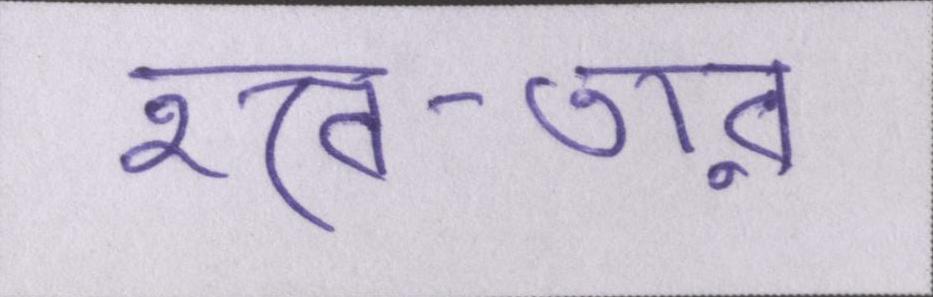 হাব-তার